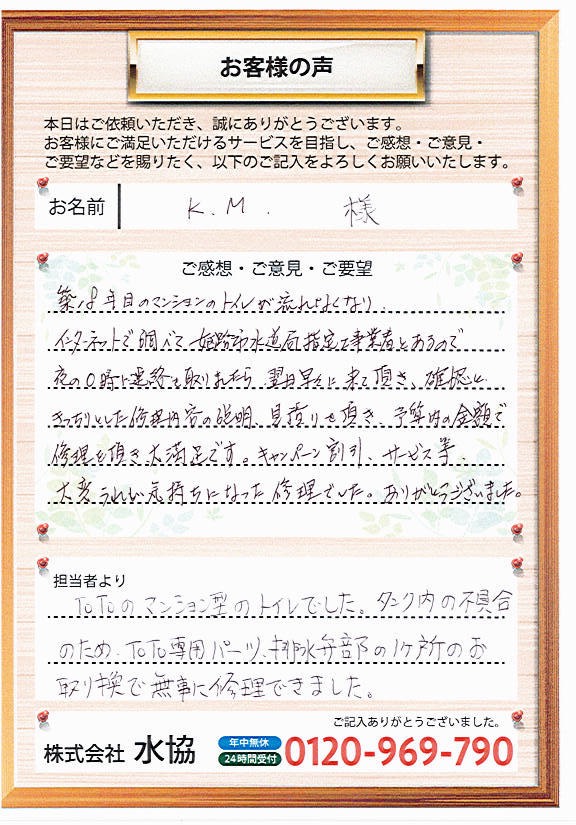 お客様の声
本日はご依頼いただき、誠にありがとうございます。
お客様にご満足いただけるサービスを目指し、ご感想・ご意見・
ご要望などを賜りたく、以下のご記入をよろしくお願いいたします。
お名前 K.M. 様
ご感想・ご意見・ご要望
築18年目のマンションのトイレが流れなくなり、
インターネットで調べて姫路市水道局指定工事業者とあるので
夜の0時に連絡を取りましたら、翌日早々に来て頂き、確認と
きっちりとした修理内容の説明、見積りを頂き、予算内の金額で
修理を頂き大満足です。キャンペーン割引、サービス等、
大変うれしい気持ちになった修理でした。ありがとうございました。
担当者より
TOTOのマンション型のトイレでした。タンク内の不具合
のため、TOTO専用パーツ、排水弁部の1ヶ所のお
取り換で無事に修理できました。
ご記入ありがとうございました。
株式会社 水協 年中無休 24時間受付 0120-969-790